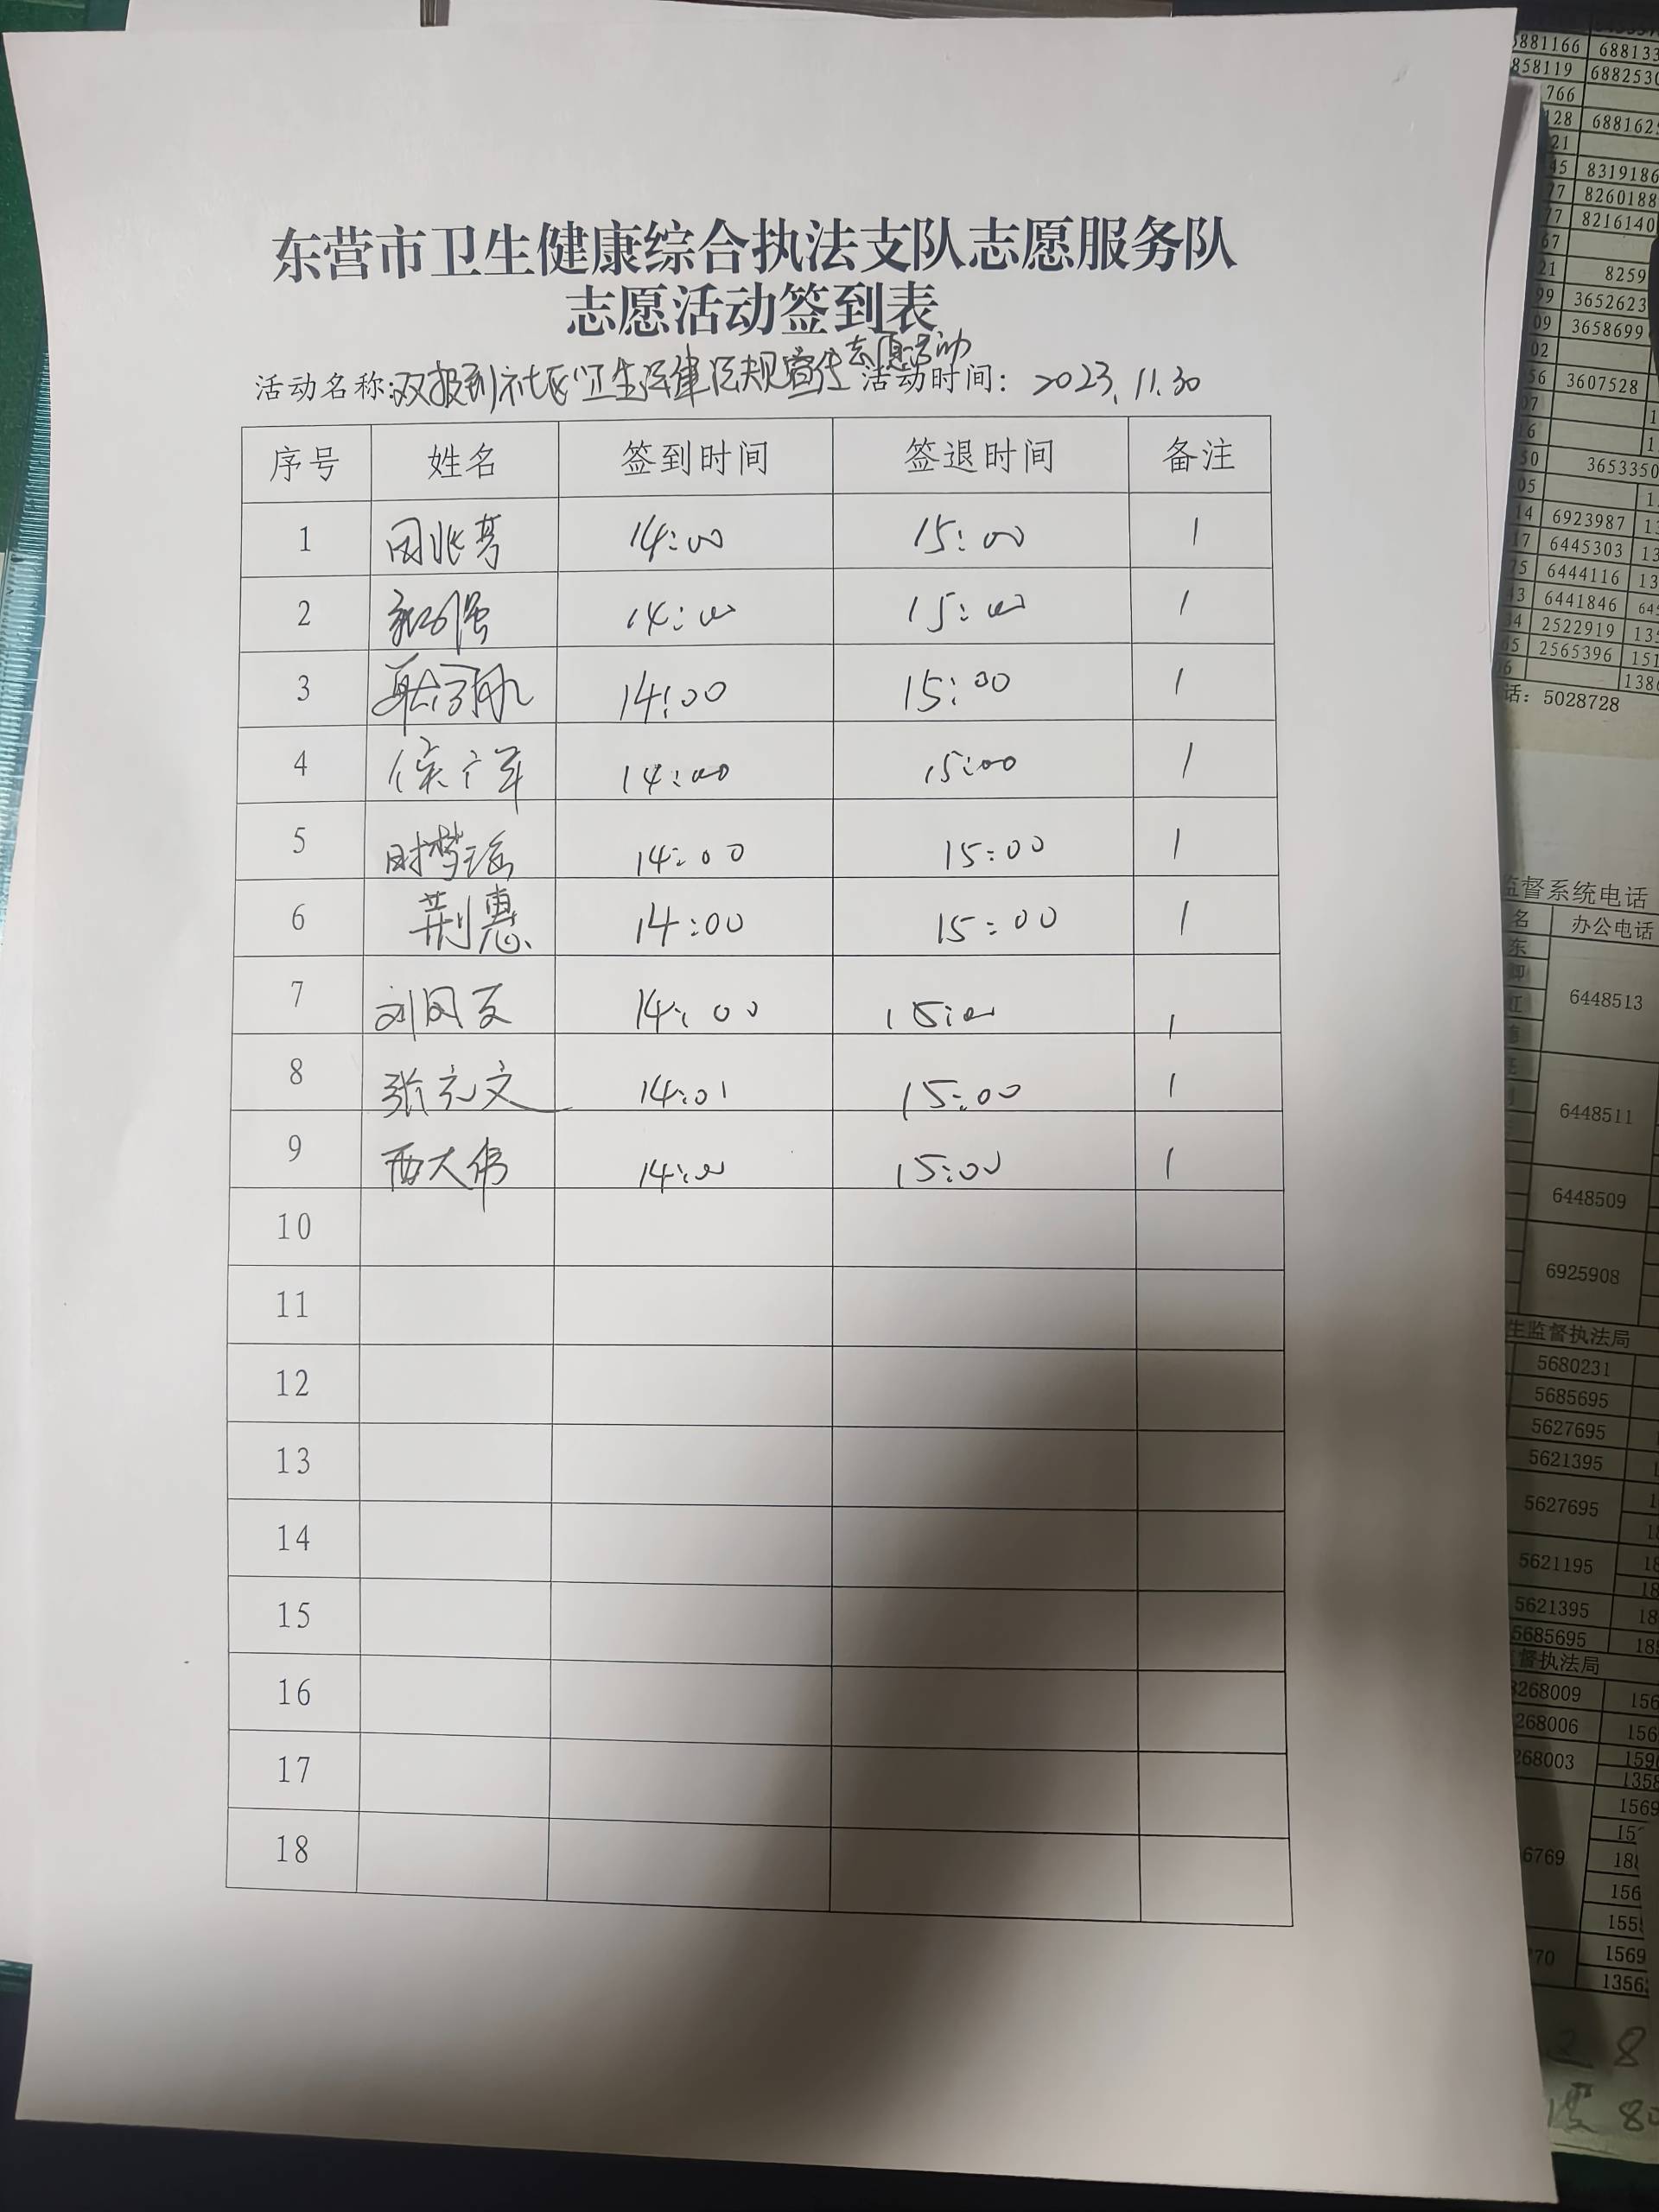 东营市卫生健康综合执法支队志愿服务队
志愿活动签到表
活动名称:双报到社区卫生法律法规宣传志愿活动 活动时间: 2023.11.30
序号 姓名 签到时间 签退时间 备注
1 14:00 15:00 1
2 14:00 15:00 1
3 14:00 15:00 1
4 14:00 15:00 1
5 时梦瑶 14:00 15:00 1
6 荆惠 14:00 15:00 1
7 14:00 15:00 1
8 张元文 14:01 15:00 1
9 西大伟 14:00 15:00 1
10
11
12
13
14
15
16
17
18
881166 688133
858119 6882530
766
128 688162
21
45 8319186
77 8260188
77 8216140
67
21 8259
99 3652623
09 3658699
02
56 3607528
07
16
50 3653350
05
14 6923987
17 6445303 13
75 6444116 13
43 6441846
34 2522919 13
65 2565396 151
06 138
话: 5028728
监督系统电话
名 办公电话
东
6448513
6448511
6448509
6925908
生监督执法局
5680231
5685695
5627695
5621395
5627695
5621195 18
18
5621395 18
5685695 18
督执法局
8268009 156
268006 156
268003 159
1358
1569
15
6769 18
156
155
70 1569
1356
2 8